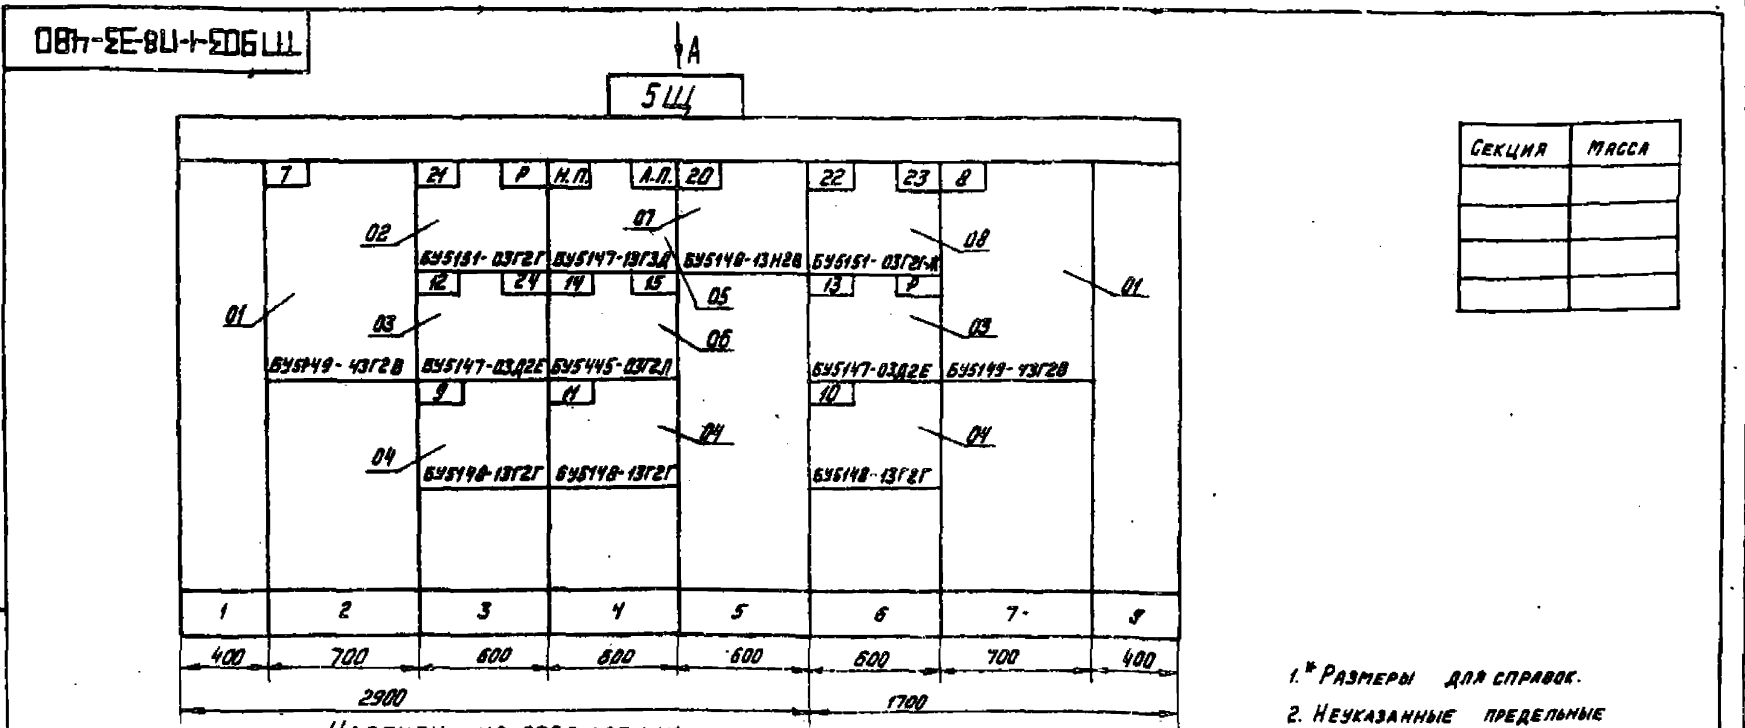 ТП903-1-П8-ЭЗ-480
А
5Щ
СЕКЦИЯ МАССА
7 21 Р Н.П. А.П. 20 22 23 8
02 07 08
БУ5151-03Г2Г БУ5147-13Г3Д БУ5148-13Н2В БУ5151-03Г2Г-А
12 24 14 15 13 Р
01 03 05 06 03 01
БУ5149-43Г2В БУ5147-03Д2Е БУ5445-03Г2Л БУ5147-03Д2Е БУ5149-43Г2В
9 11 10
04 04 04
БУ5148-13Г2Г БУ5148-13Г2Г БУ5148-13Г2Г
1 2 3 4 5 6 7 8
400 700 600 600 600 600 700 400
2900 1700
1.* РАЗМЕРЫ ДЛЯ СПРАВОК.
2. НЕУКАЗАННЫЕ ПРЕДЕЛЬНЫЕ